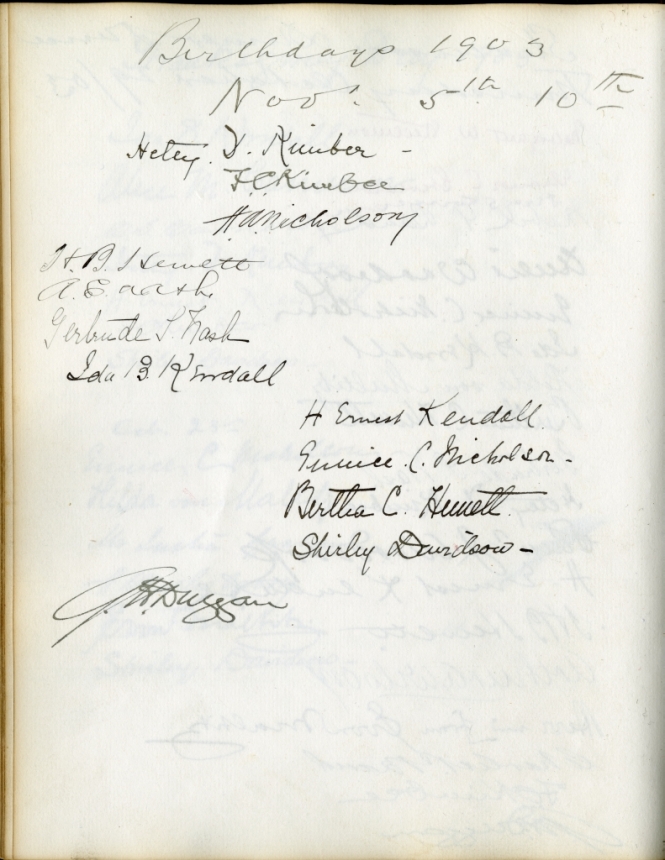 Birthdays 1903
Nov. 5th 10th
Hetty D. Kimber -
F C Kimber
H.A. Nicholson
H. B. Hewett
A. E. Nash.
Gertrude S. Nash
Ida B. Kendall
H Ernest Kendall.
Eunice. C. Nicholson -
Bertha C. Hewett.
Shirley Davidson -
G.H. Duggan